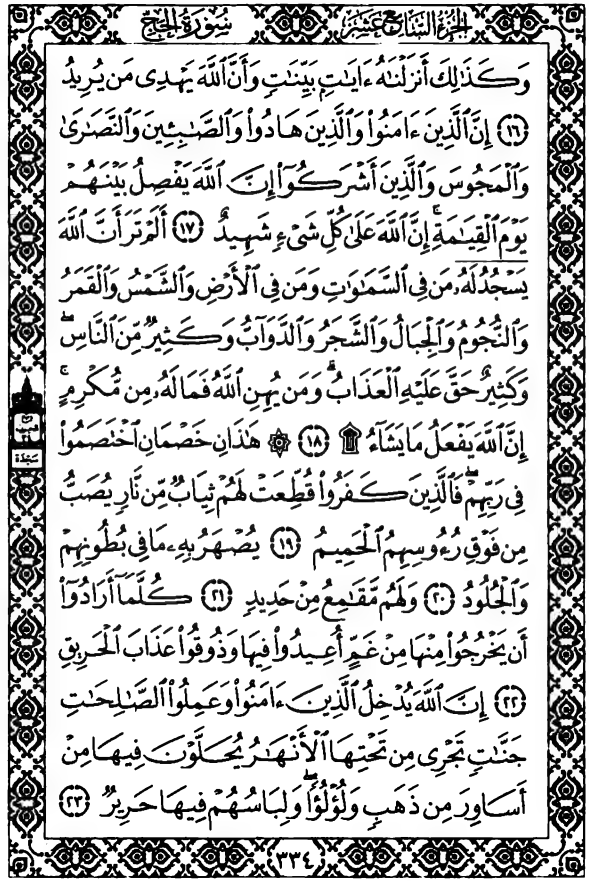 الجزء السابع عشر
سورة الحج
وَكَذَٰلِكَ أَنزَلْنَٰهُ ءَايَٰتٍۭ بَيِّنَٰتٍ وَأَنَّ ٱللَّهَ يَهْدِى مَن يُرِيدُ
﴿١٦﴾ إِنَّ ٱلَّذِينَ ءَامَنُوا۟ وَٱلَّذِينَ هَادُوا۟ وَٱلصَّٰبِـِٔينَ وَٱلنَّصَٰرَىٰ
وَٱلْمَجُوسَ وَٱلَّذِينَ أَشْرَكُوٓا۟ إِنَّ ٱللَّهَ يَفْصِلُ بَيْنَهُمْ
يَوْمَ ٱلْقِيَٰمَةِ ۚ إِنَّ ٱللَّهَ عَلَىٰ كُلِّ شَىْءٍ شَهِيدٌ ﴿١٧﴾ أَلَمْ تَرَ أَنَّ ٱللَّهَ
يَسْجُدُ لَهُۥ مَن فِى ٱلسَّمَٰوَٰتِ وَمَن فِى ٱلْأَرْضِ وَٱلشَّمْسُ وَٱلْقَمَرُ
وَٱلنُّجُومُ وَٱلْجِبَالُ وَٱلشَّجَرُ وَٱلدَّوَآبُّ وَكَثِيرٌ مِّنَ ٱلنَّاسِ ۖ
وَكَثِيرٌ حَقَّ عَلَيْهِ ٱلْعَذَابُ ۗ وَمَن يُهِنِ ٱللَّهُ فَمَا لَهُۥ مِن مُّكْرِمٍ ۚ
إِنَّ ٱللَّهَ يَفْعَلُ مَا يَشَآءُ ۩ ﴿١٨﴾ ۞ هَٰذَانِ خَصْمَانِ ٱخْتَصَمُوا۟
فِى رَبِّهِمْ ۖ فَٱلَّذِينَ كَفَرُوا۟ قُطِّعَتْ لَهُمْ ثِيَابٌ مِّن نَّارٍ يُصَبُّ
مِن فَوْقِ رُءُوسِهِمُ ٱلْحَمِيمُ ﴿١٩﴾ يُصْهَرُ بِهِۦ مَا فِى بُطُونِهِمْ
وَٱلْجُلُودُ ﴿٢٠﴾ وَلَهُم مَّقَٰمِعُ مِنْ حَدِيدٍ ﴿٢١﴾ كُلَّمَآ أَرَادُوٓا۟
أَن يَخْرُجُوا۟ مِنْهَا مِنْ غَمٍّ أُعِيدُوا۟ فِيهَا وَذُوقُوا۟ عَذَابَ ٱلْحَرِيقِ
﴿٢٢﴾ إِنَّ ٱللَّهَ يُدْخِلُ ٱلَّذِينَ ءَامَنُوا۟ وَعَمِلُوا۟ ٱلصَّٰلِحَٰتِ
جَنَّٰتٍ تَجْرِى مِن تَحْتِهَا ٱلْأَنْهَٰرُ يُحَلَّوْنَ فِيهَا مِنْ
أَسَاوِرَ مِن ذَهَبٍ وَلُؤْلُؤًا ۖ وَلِبَاسُهُمْ فِيهَا حَرِيرٌ ﴿٢٣﴾
سجدة
٣٣٤